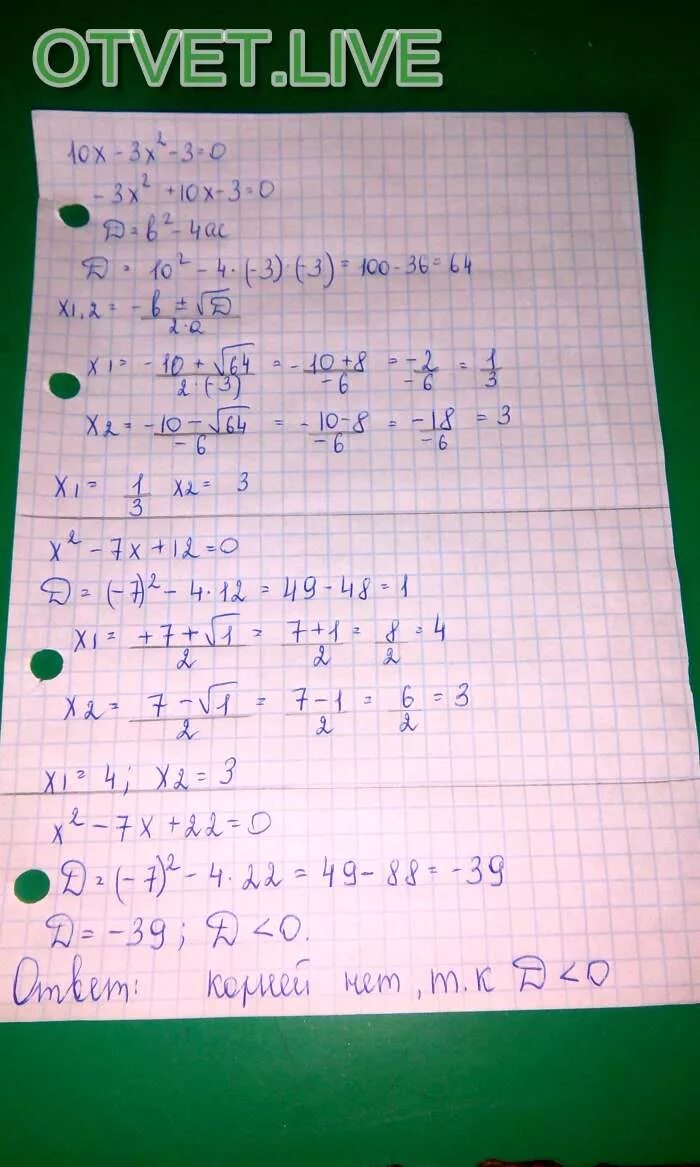 OTVET.LIVE
10x - 3x² - 3 = 0
- 3x² + 10x - 3 = 0
D = b² - 4ac
D = 10² - 4·(-3)·(-3) = 100 - 36 = 64
x1,2 = -b ± √D / 2·a
x1 = -10 + √64 / 2·(-3) = -10+8 / -6 = -2 / -6 = 1/3
x2 = -10 - √64 / -6 = -10-8 / -6 = -18 / -6 = 3
x1 = 1/3 x2 = 3
x² - 7x + 12 = 0
D = (-7)² - 4·12 = 49 - 48 = 1
x1 = +7 + √1 / 2 = 7+1 / 2 = 8/2 = 4
x2 = 7 - √1 / 2 = 7-1 / 2 = 6/2 = 3
x1 = 4; x2 = 3
x² - 7x + 22 = 0
D = (-7)² - 4·22 = 49 - 88 = -39
D = -39; D < 0.
Ответ: корней нет, т.к D < 0